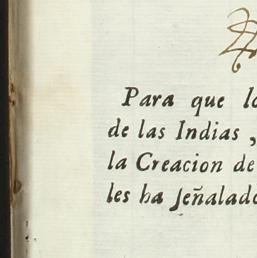 Para que lo
de las Indias,
la Creacion de
les ha ſeñalado